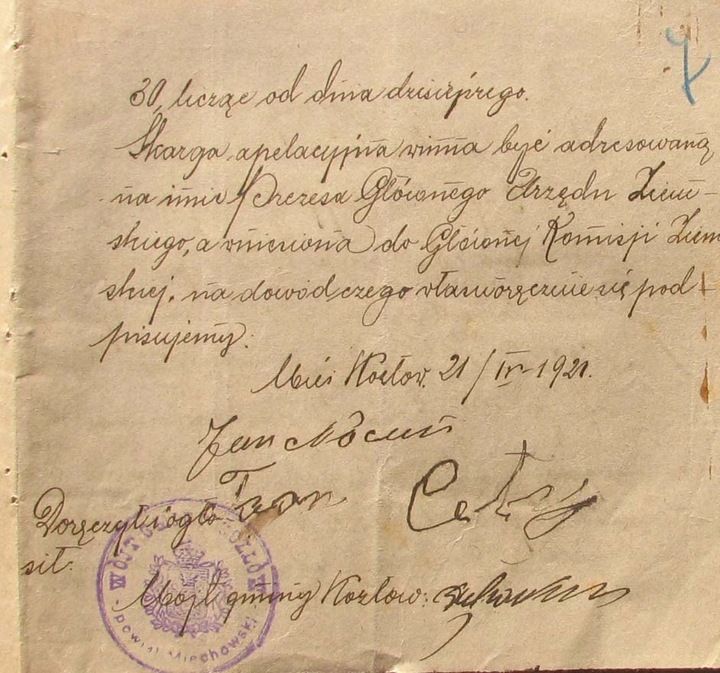 7
30, licząc od dnia dzisiejszego.
Skarga apelacyjna winna być adresowaną
na imię Prezesa Głównego Urzędu Ziem-
skiego, a wniesiona do Głównej Komisji Ziem
skiej, na dowód czego własnoręcznie się pod
pisujemy.
Wieś Kozłow. 21/IV-1921.
Jan
Jan
Doręczył i ogło-
sił:
Wójt gminy Kozłow:
WÓJT GMINY KOZŁÓW
powiat Miechowski